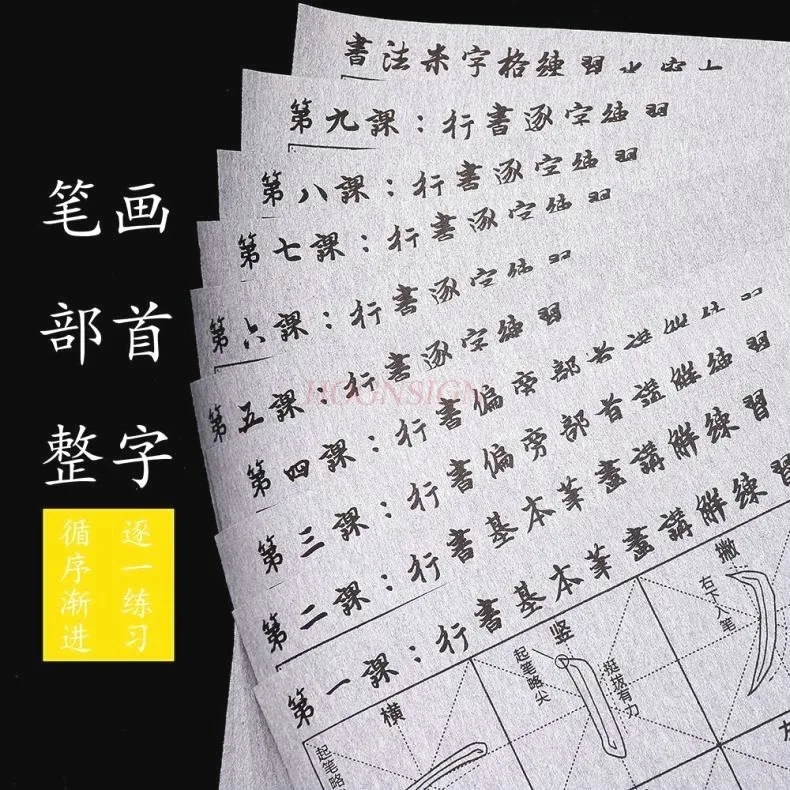 笔画
部首
整字
逐一练习
循序渐进
書法米字格練習
第九課：行書逐字練習
第八課：行書逐字練習
第七課：行書逐字練習
第六課：行書逐字練習
第五課：行書逐字練習
第四課：行書偏旁部首講解練習
第三課：行書偏旁部首講解練習
第二課：行書基本筆畫講解練習
第一課：行書基本筆畫講解練習
横
起笔略
竖
起笔略尖
挺拔有力
撇
右下入笔
HOGNSIGN